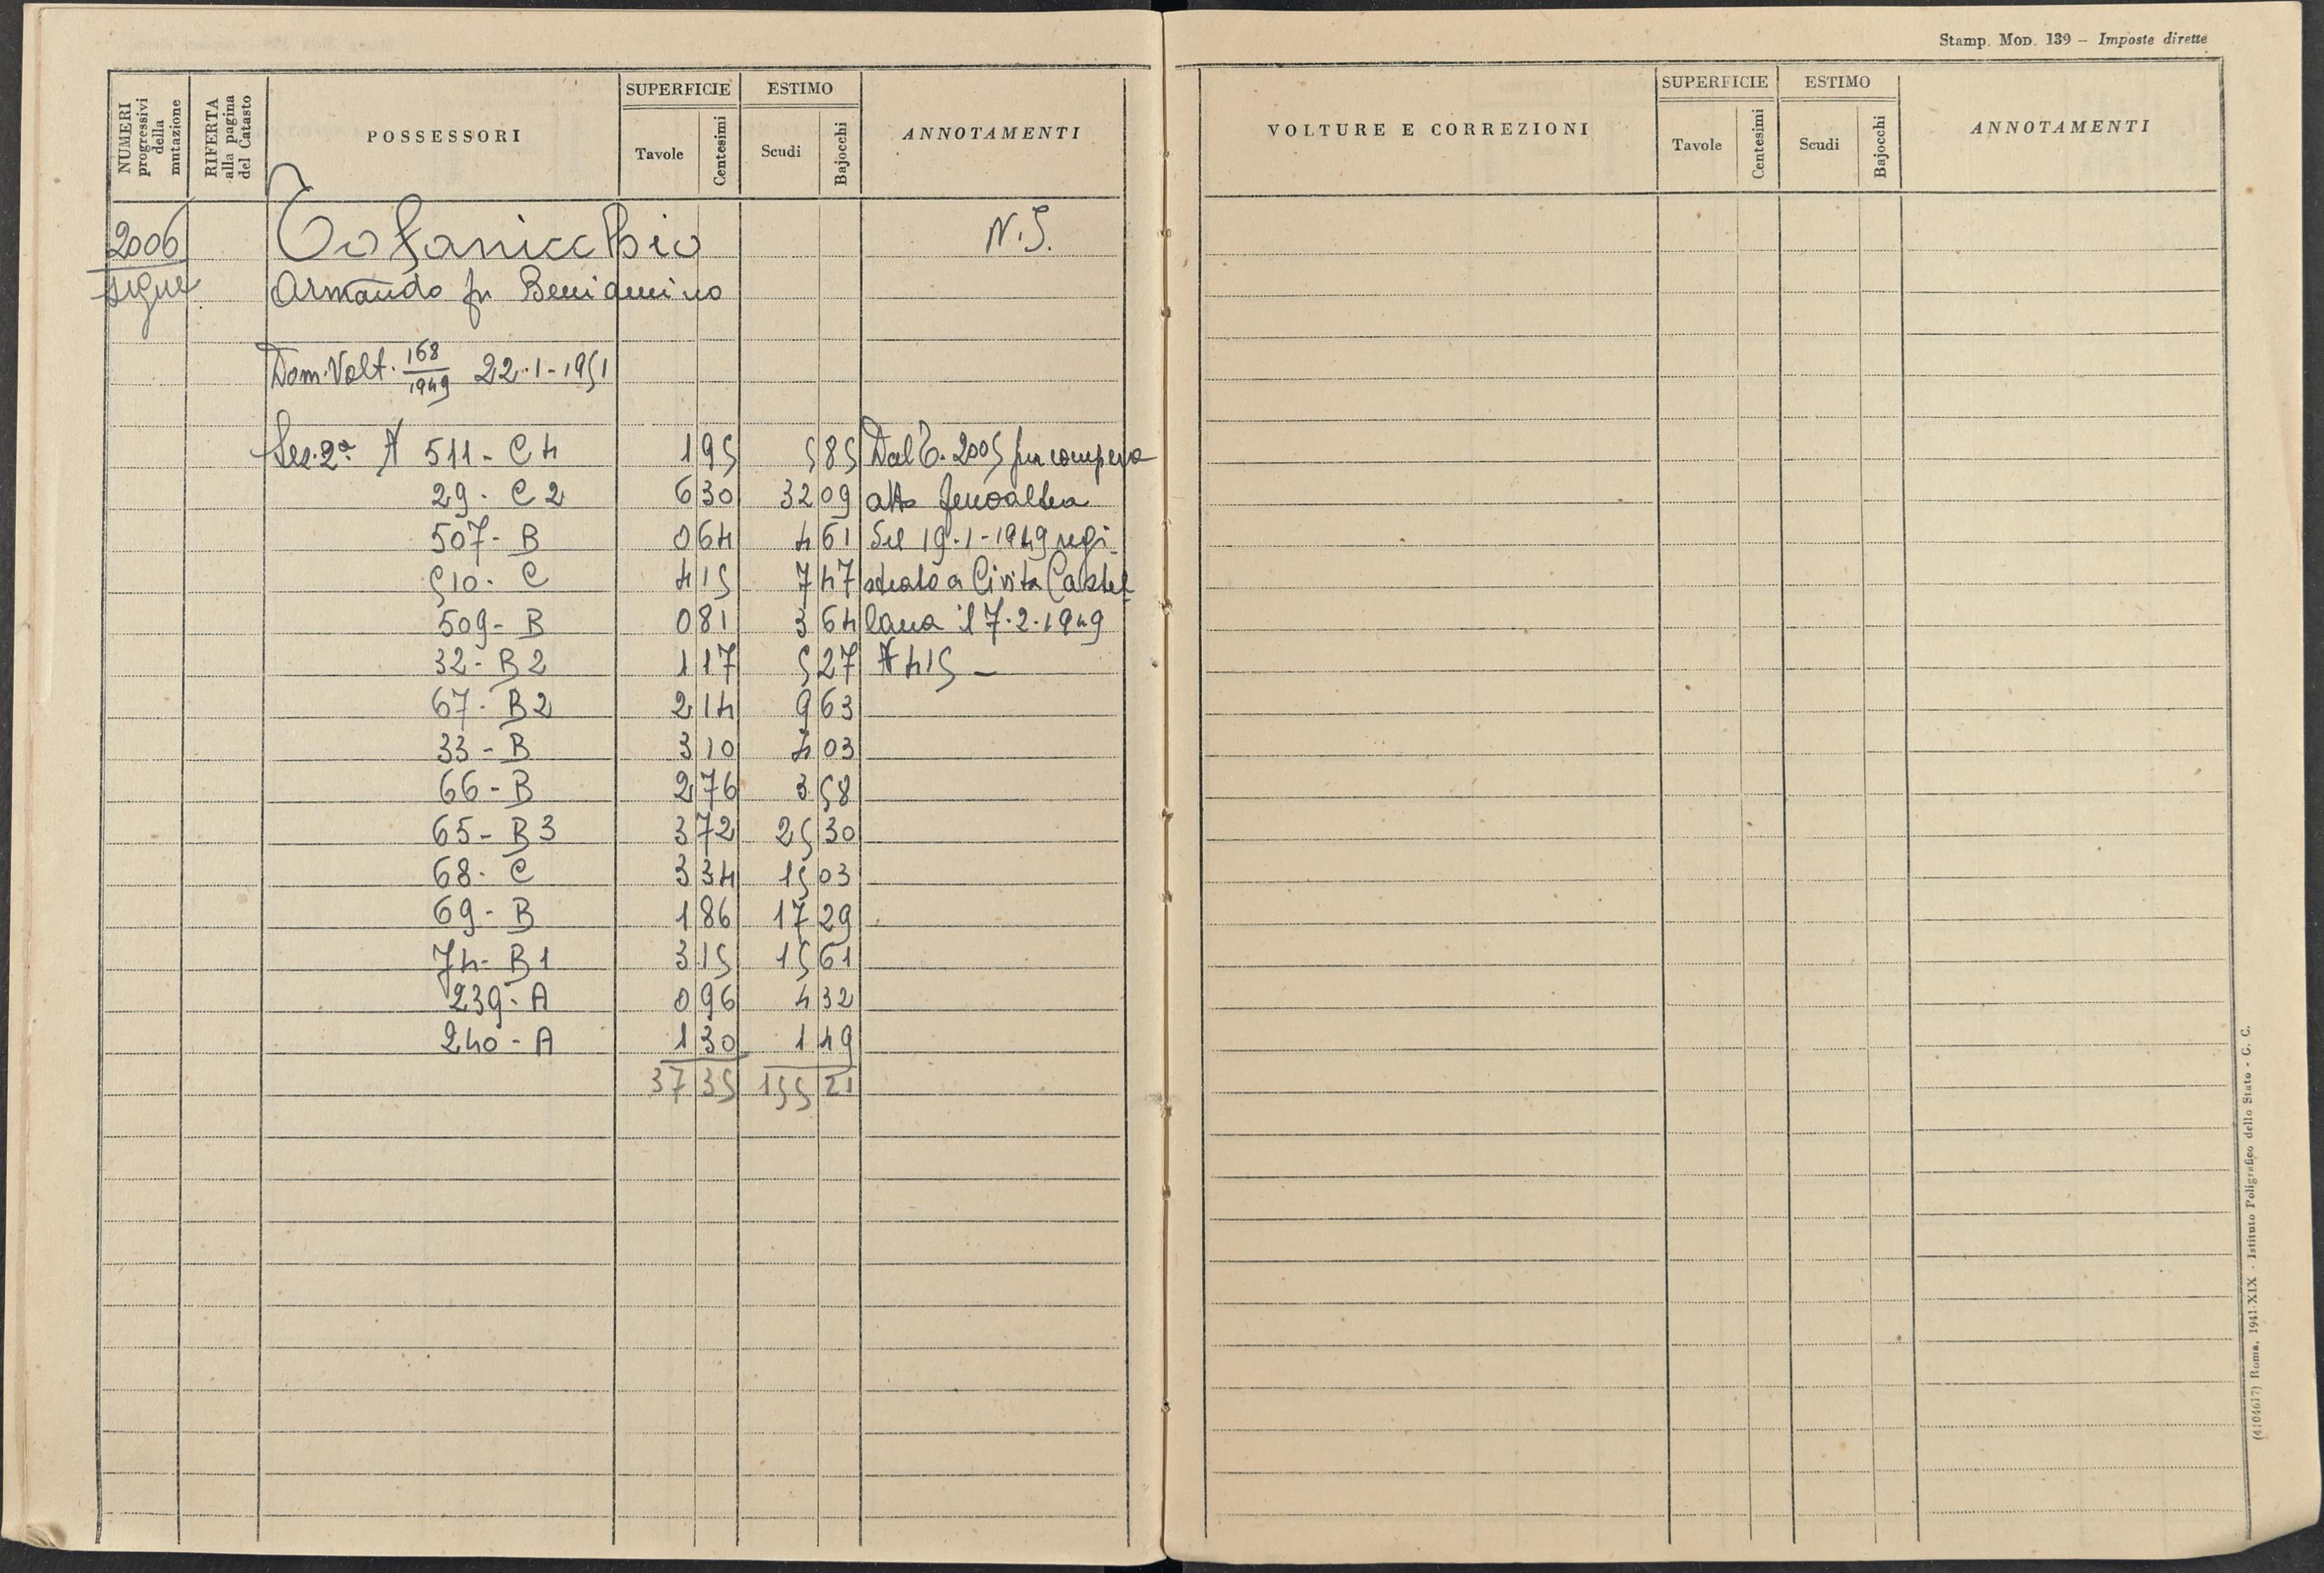 NUMERI progressivi della mutazione
RIFERTA alla pagina del Catasto
POSSESSORI
SUPERFICIE
Tavole
Centesimi
ESTIMO
Scudi
Bajocchi
ANNOTAMENTI
2006 Tofanicchio N.S.
segue Armando fu Beniamino
Dom. Volt. 168/1949 22-1-1951
Sez. 2ª N 511 - C4 1 95 5 85 Dal T. 2005 per compera
29 - C2 6 30 32 09 atto
507 - B 0 64 4 61 del 19-1-1949 regi
510 - C 4 15 7 47 strato a Civita Castel
509 - B 0 81 3 64 lana il 7-2-1949
32 - B2 1 17 5 27 N 415 -
67 - B2 2 14 9 63
33 - B 3 10 4 03
66 - B 2 76 3 58
65 - B3 3 72 25 30
68 - C 3 34 15 03
69 - B 1 86 17 29
74 - B1 3 15 15 61
239 - A 0 96 4 32
240 - A 1 30 1 49
37 35 155 21
Stamp. Mod. 139 – Imposte dirette
VOLTURE E CORREZIONI
SUPERFICIE
Tavole
Centesimi
ESTIMO
Scudi
Bajocchi
ANNOTAMENTI
(4104617) Roma, 1941-XIX - Istituto Poligrafico dello Stato - G. C.